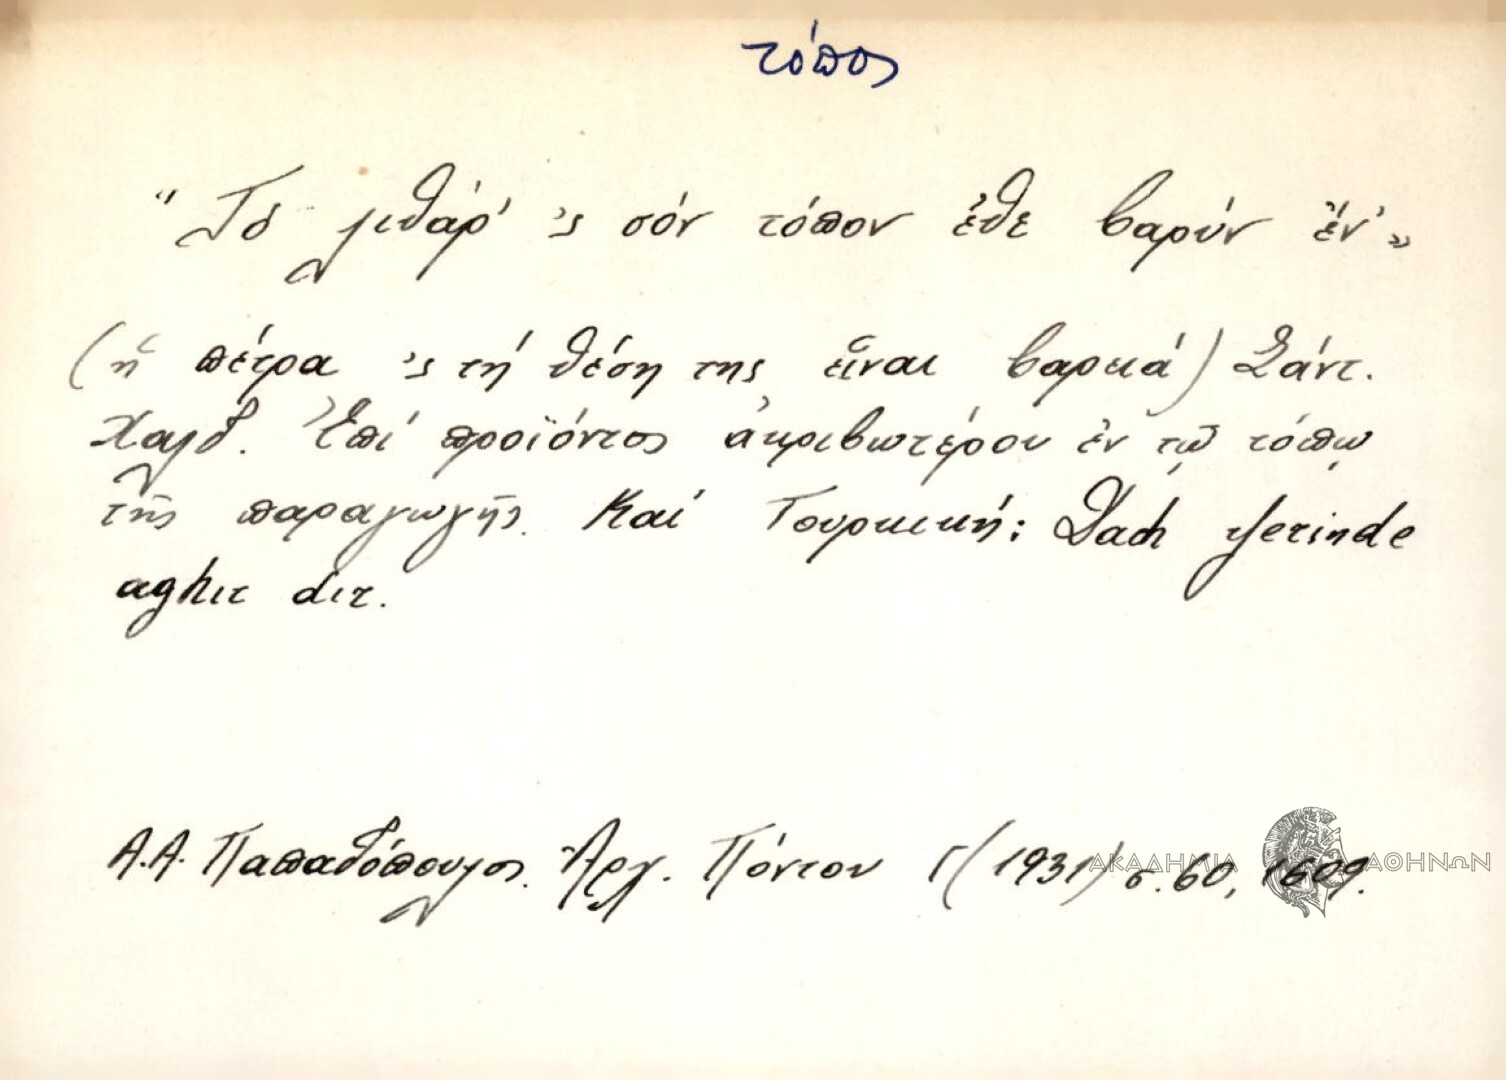 τόπος
"Τὸ λιθάρ' 'ς σόν τόπον ἐθε βαρύν ἔν'"
(ἡ πέτρα 'ς τή θέση της εἶναι βαρειά) Σάντ.
Χαλδ. Ἐπί προϊόντος ἀκριβωτέρου ἐν τῷ τόπῳ
τῆς παραγωγῆς. Καί Τουρκική: Dach yerinde
aghir dir.
Α.Α. Παπαδόπουλος. Ἀρχ. Πόντου Γ (1931) σ. 60, 1609.
ΑΚΑΔΗΜΙΑ ΑΘΗΝΩΝ